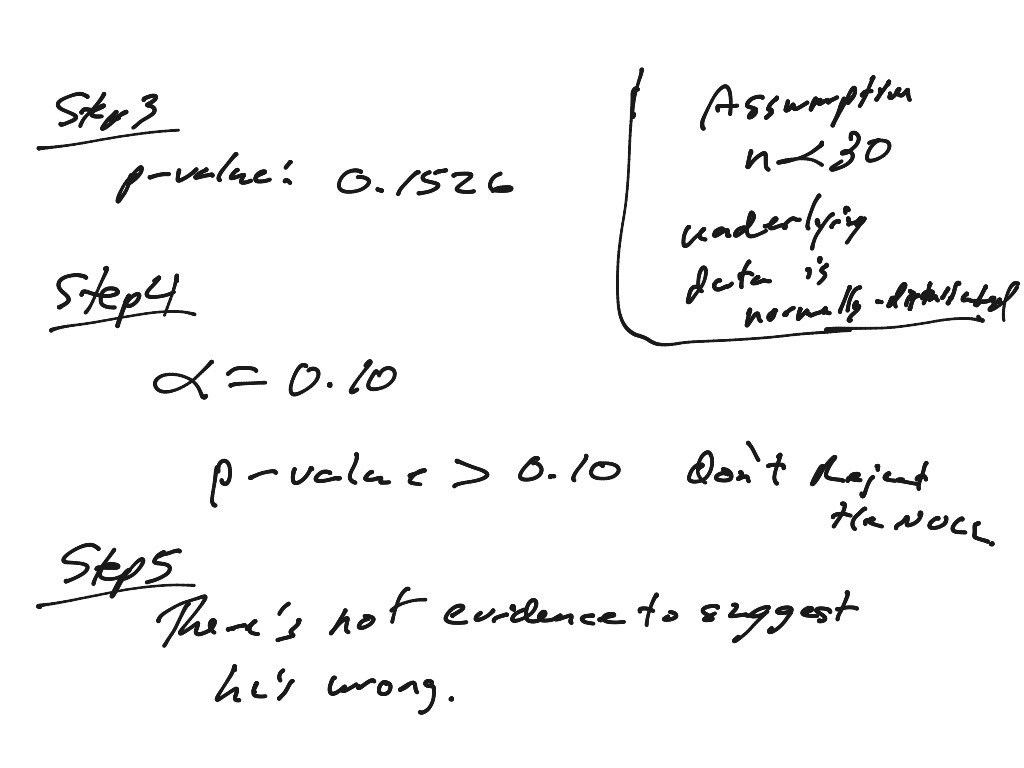 Step 3
p-value: 0.1526
Assumption
n < 30
underlying
data is
normally-distributed
Step 4
α = 0.10
p-value > 0.10 Don't Reject
the NULL.
Step 5
There's not evidence to suggest
he's wrong.